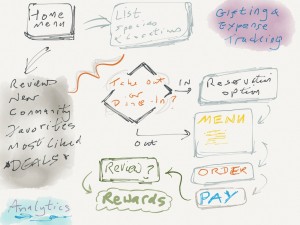 Home
Menu
List
Gifting &
Expense
Tracking
Reviews
New
Community
Favorites
Most Liked
*DEALS*
Take Out
or
Dine-In?
IN
Out
Reservation
option
MENU
ORDER
PAY
Review?
Rewards
Analytics